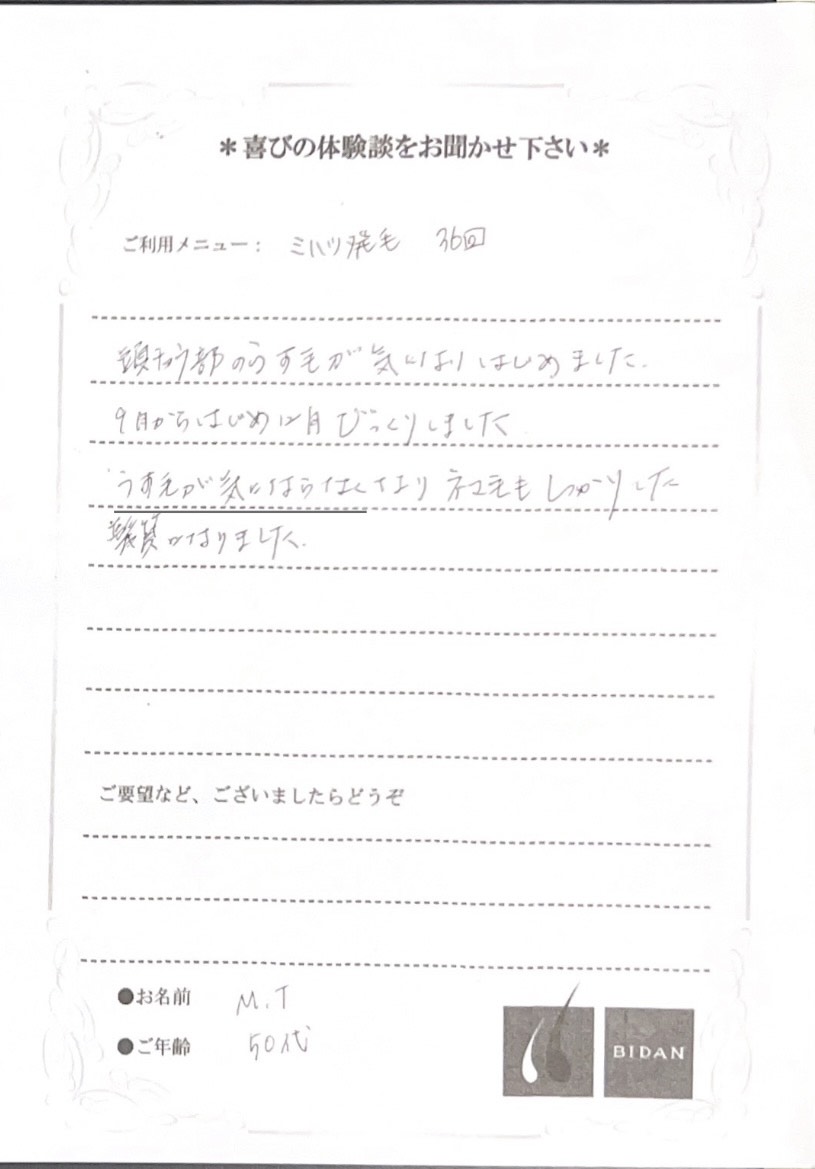 ＊喜びの体験談をお聞かせ下さい＊
ご利用メニュー： ミハツ発毛 36回
頭頂部のうす毛が気になりはじめました。
9月からはじめ12月びっくりしました
うす毛が気にならなくなり ネコ毛もしっかりした
髪質になりました。
ご要望など、ございましたらどうぞ
●お名前 M.T
●ご年齢 50代
BIDAN